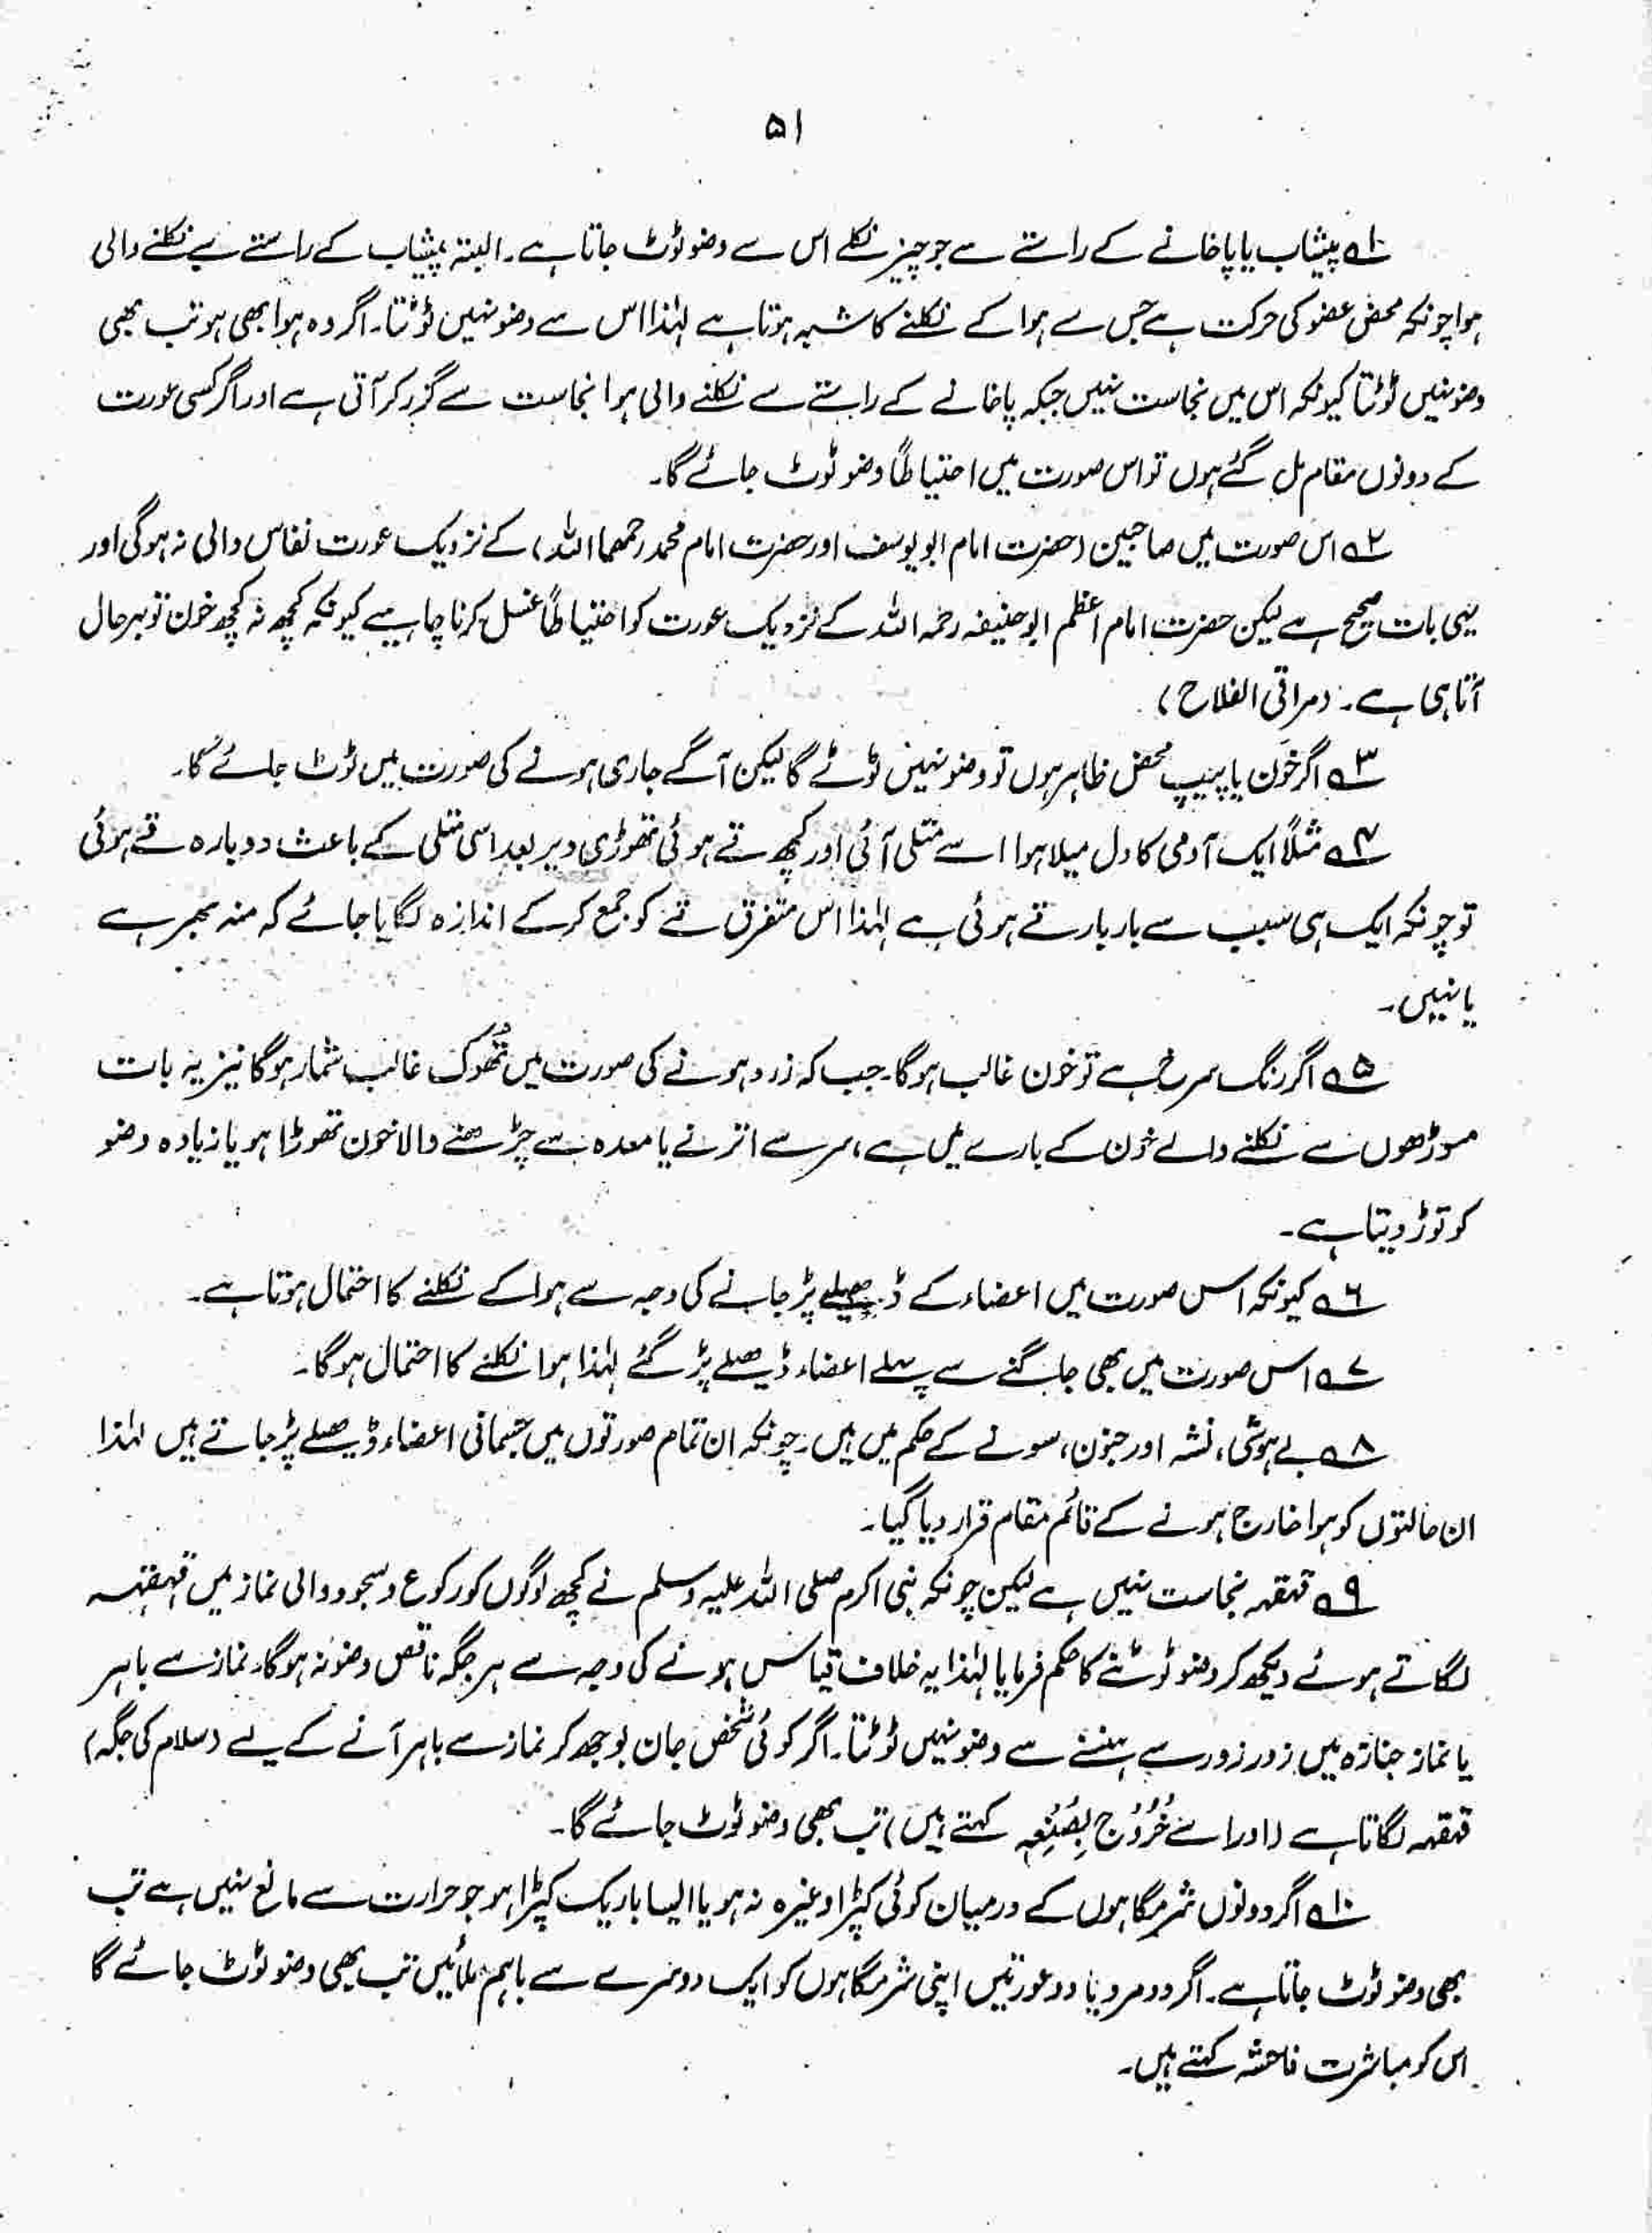 ۵۱
۱؎ پیشاب یا پاخانے کے راستے سے جو چیز نکلے اس سے وضو ٹوٹ جاتا ہے۔ البتہ پیشاب کے راستے سے نکلنے والی
ہوا چونکہ محض عضو کی حرکت ہے جس سے ہوا کے نکلنے کا شبہ ہوتا ہے لہٰذا اس سے وضو نہیں ٹوٹتا۔ اگر وہ ہوا بھی ہو تب بھی
وضو نہیں ٹوٹتا کیونکہ اس میں نجاست نہیں جبکہ پاخانے کے راستے سے نکلنے والی ہوا نجاست سے گزر کر آتی ہے اور اگر کسی عورت
کے دونوں مقام مل گئے ہوں تو اس صورت میں احتیاطاً وضو ٹوٹ جائے گا۔
۲؎ اس صورت میں صاحبین (حضرت امام ابو یوسف اور حضرت امام محمد رحمہما اللہ) کے نزدیک عورت نفاس والی نہ ہوگی اور
یہی بات صحیح ہے لیکن حضرت امام اعظم ابو حنیفہ رحمہ اللہ کے نزدیک عورت کو احتیاطاً غسل کرنا چاہیے کیونکہ کچھ نہ کچھ خون تو بہرحال
آتا ہی ہے۔ (مراقی الفلاح)
۳؎ اگر خون یا پیپ محض ظاہر ہوں تو وضو نہیں ٹوٹے گا لیکن آگے جاری ہونے کی صورت میں ٹوٹ جائے گا۔
۴؎ مثلاً ایک آدمی کا دل میلا ہوا اسے متلی آئی اور کچھ قے ہوئی تھوڑی دیر بعد اسی متلی کے باعث دوبارہ قے ہوئی
تو چونکہ ایک ہی سبب سے بار بار قے ہوئی ہے لہٰذا اس متفرق قے کو جمع کر کے اندازہ لگایا جائے کہ منہ بھر ہے
یا نہیں۔
۵؎ اگر رنگ سرخ ہے تو خون غالب ہوگا۔ جب کہ زرد ہونے کی صورت میں تُھوک غالب شمار ہوگا نیز یہ بات
مسوڑھوں سے نکلنے والے خون کے بارے میں ہے، سر سے اترنے یا معدہ سے چڑھنے والا خون تھوڑا ہو یا زیادہ وضو
کو توڑ دیتا ہے۔
۶؎ کیونکہ اس صورت میں اعضاء کے ڈھیلے پڑ جانے کی وجہ سے ہوا کے نکلنے کا احتمال ہوتا ہے۔
۷؎ اس صورت میں بھی جاگنے سے پہلے اعضاء ڈھیلے پڑ گئے لہٰذا ہوا نکلنے کا احتمال ہوگا۔
۸؎ بے ہوشی، نشہ اور جنون، سونے کے حکم میں ہیں۔ چونکہ ان تمام صورتوں میں جسمانی اعضاء ڈھیلے پڑ جاتے ہیں لہٰذا
ان حالتوں کو ہوا خارج ہونے کے قائم مقام قرار دیا گیا۔
۹؎ قہقہہ نجاست نہیں ہے لیکن چونکہ نبی اکرم صلی اللہ علیہ وسلم نے کچھ لوگوں کو رکوع و سجود والی نماز میں قہقہہ
لگاتے ہوئے دیکھ کر وضو ٹوٹنے کا حکم فرمایا لہٰذا یہ خلاف قیاس ہونے کی وجہ سے ہر جگہ ناقض وضو نہ ہوگا۔ نماز سے باہر
یا نماز جنازہ میں زور زور سے ہنسنے سے وضو نہیں ٹوٹتا۔ اگر کوئی شخص جان بوجھ کر نماز سے باہر آنے کے لیے (سلام کی جگہ)
قہقہہ لگاتا ہے (اور اسے خُرُوج بِصُنْعِہٖ کہتے ہیں) تب بھی وضو ٹوٹ جائے گا۔
۱۰؎ اگر دونوں شرمگاہوں کے درمیان کوئی کپڑا وغیرہ نہ ہو یا ایسا باریک کپڑا ہو جو حرارت سے مانع نہیں ہے تب
بھی وضو ٹوٹ جاتا ہے۔ اگر دو مرد یا دو عورتیں اپنی شرمگاہوں کو ایک دوسرے سے باہم ملائیں تب بھی وضو ٹوٹ جائے گا
اس کو مباشرت فاحشہ کہتے ہیں۔